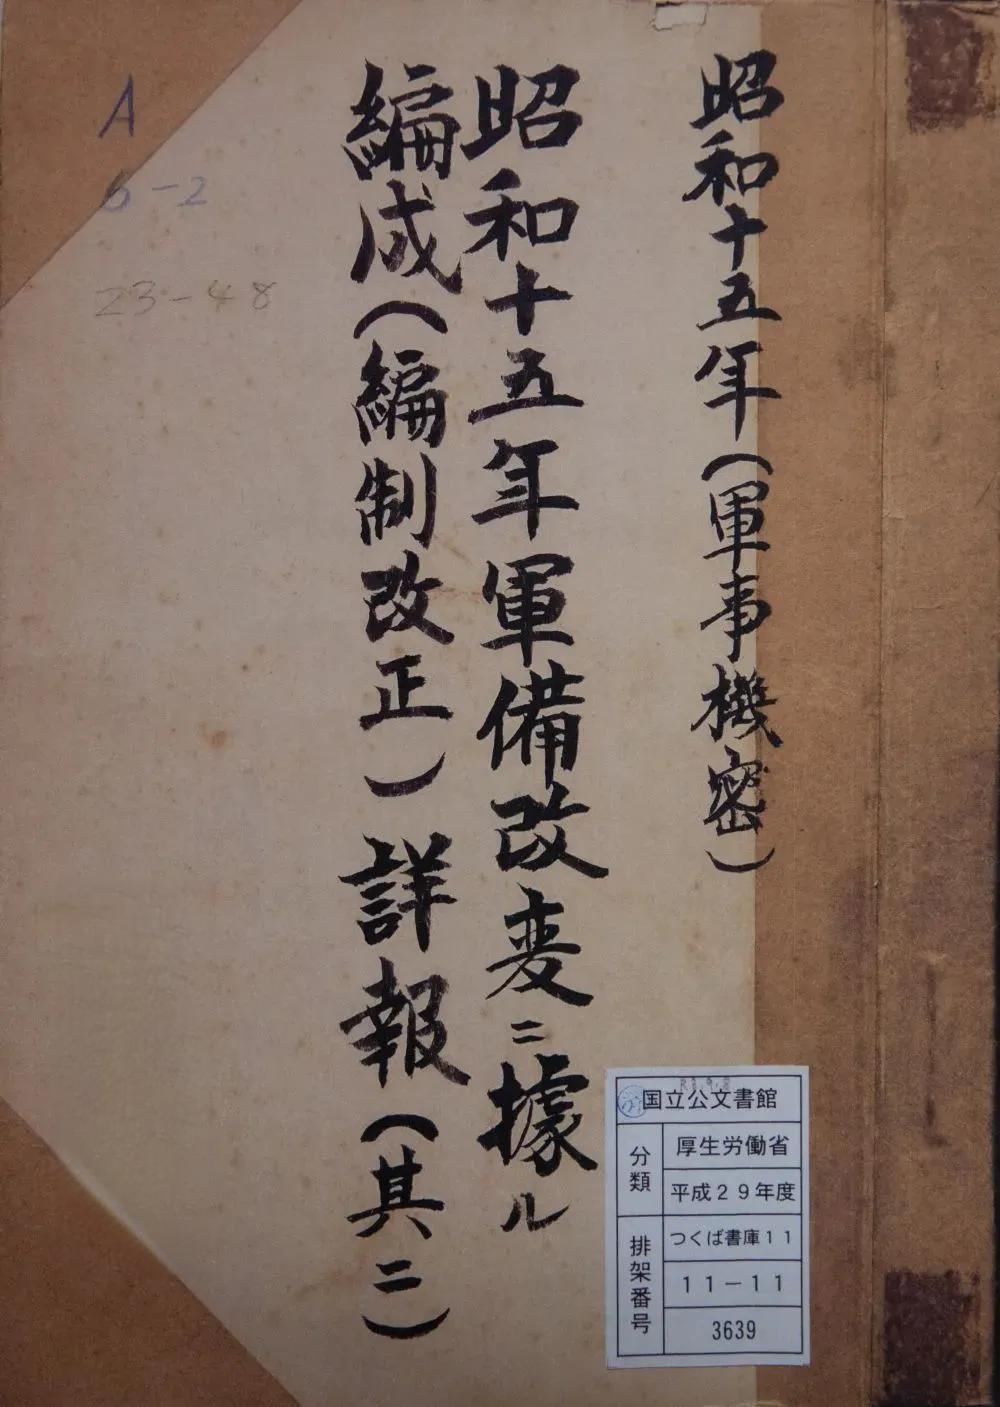 昭和十五年(軍事機密)
昭和十五年軍備改変ニ據ル
編成(編制改正)詳報(其二)
A
6-2
23-48
国立公文書館
分類
厚生労働省
平成29年度
排架番号
つくば書庫11
11-11
3639